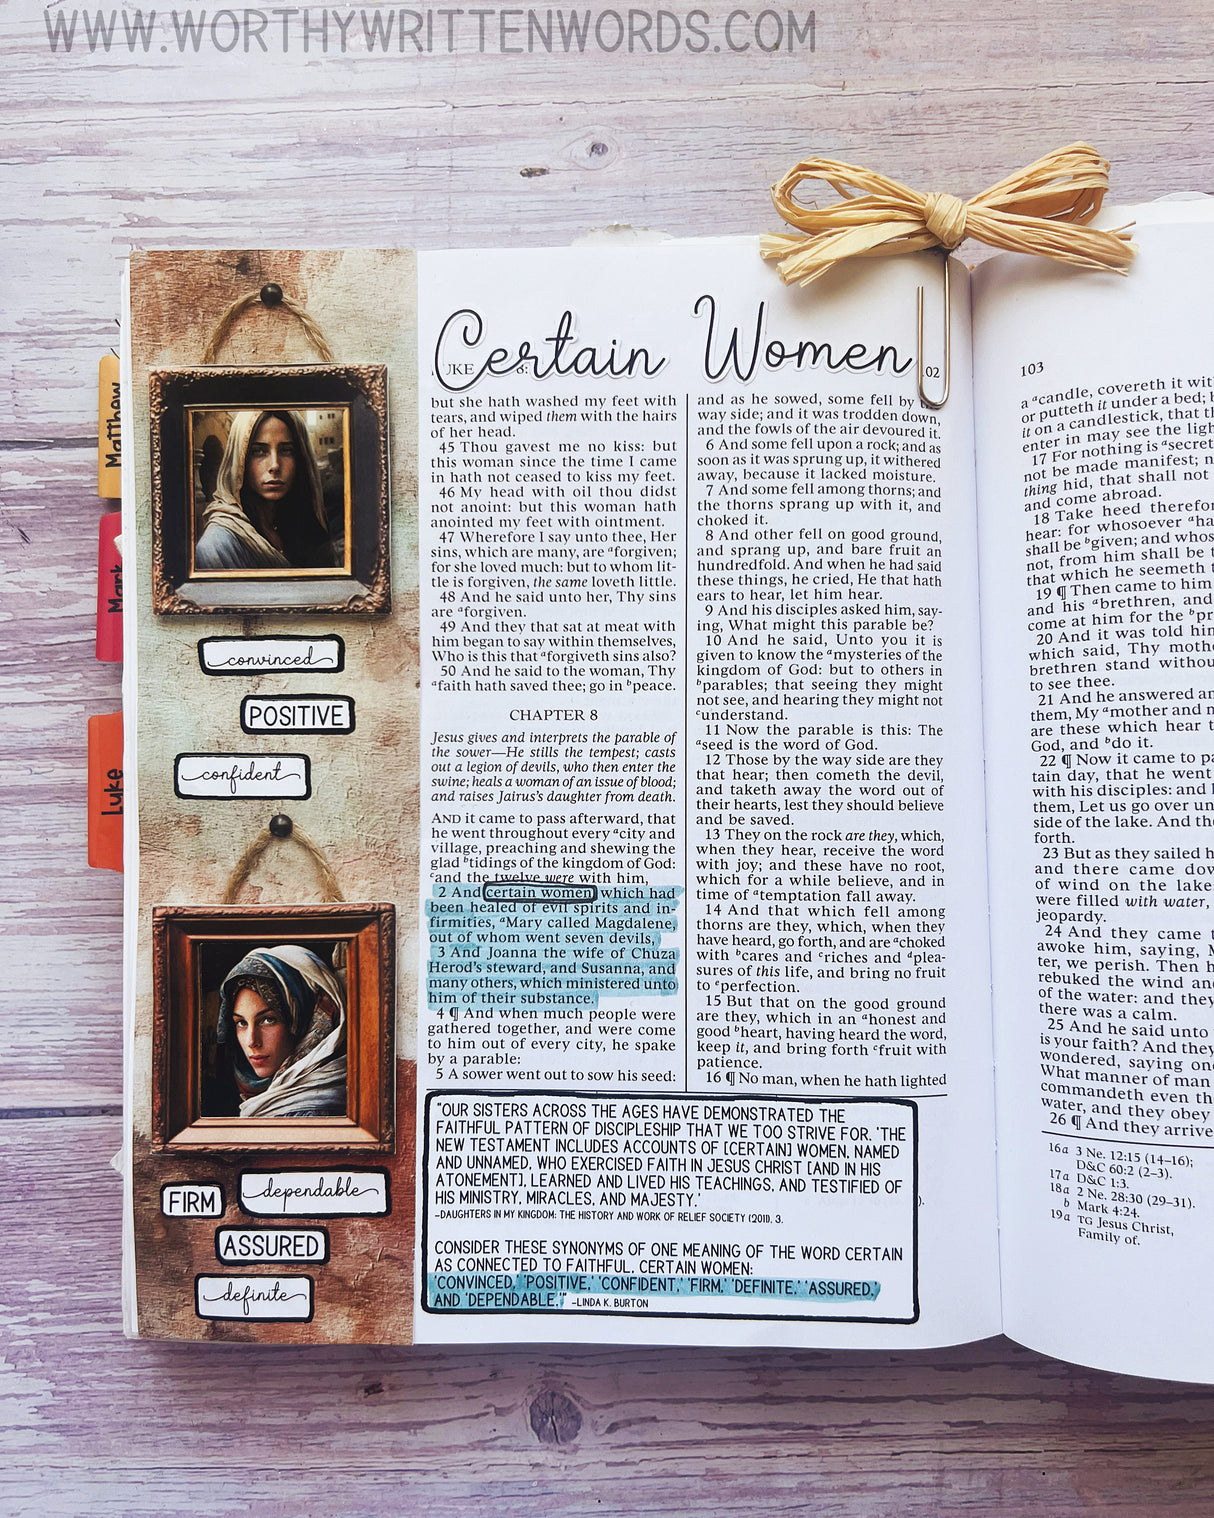 WWW.WORTHYWRITTENWORDS.COM
Certain Women
UKE
02
Matthew
Mark
Luke
convinced
POSITIVE
confident
FIRM
dependable
ASSURED
definite
but she hath washed my feet with
tears, and wiped them with the hairs
of her head.
45 Thou gavest me no kiss: but
this woman since the time I came
in hath not ceased to kiss my feet.
46 My head with oil thou didst
not anoint: but this woman hath
anointed my feet with ointment.
47 Wherefore I say unto thee, Her
sins, which are many, are ᵃforgiven;
for she loved much: but to whom lit-
tle is forgiven, the same loveth little.
48 And he said unto her, Thy sins
are ᵃforgiven.
49 And they that sat at meat with
him began to say within themselves,
Who is this that ᵃforgiveth sins also?
50 And he said to the woman, Thy
ᵃfaith hath saved thee; go in ᵇpeace.
CHAPTER 8
Jesus gives and interprets the parable of
the sower—He stills the tempest; casts
out a legion of devils, who then enter the
swine; heals a woman of an issue of blood;
and raises Jairus's daughter from death.
AND it came to pass afterward, that
he went throughout every ᵃcity and
village, preaching and shewing the
glad ᵇtidings of the kingdom of God:
ᶜand the twelve were with him,
2 And certain women, which had
been healed of evil spirits and in-
firmities, ᵃMary called Magdalene,
out of whom went seven devils,
3 And Joanna the wife of Chuza
Herod's steward, and Susanna, and
many others, which ministered unto
him of their substance.
4 ¶ And when much people were
gathered together, and were come
to him out of every city, he spake
by a parable:
5 A sower went out to sow his seed:
and as he sowed, some fell by
way side; and it was trodden down,
and the fowls of the air devoured it.
6 And some fell upon a rock; and as
soon as it was sprung up, it withered
away, because it lacked moisture.
7 And some fell among thorns; and
the thorns sprang up with it, and
choked it.
8 And other fell on good ground,
and sprang up, and bare fruit an
hundredfold. And when he had said
these things, he cried, He that hath
ears to hear, let him hear.
9 And his disciples asked him, say-
ing, What might this parable be?
10 And he said, Unto you it is
given to know the ᵃmysteries of the
kingdom of God: but to others in
ᵇparables; that seeing they might
not see, and hearing they might not
ᶜunderstand.
11 Now the parable is this: The
ᵃseed is the word of God.
12 Those by the way side are they
that hear; then cometh the devil,
and taketh away the word out of
their hearts, lest they should believe
and be saved.
13 They on the rock are they, which,
when they hear, receive the word
with joy; and these have no root,
which for a while believe, and in
time of ᵃtemptation fall away.
14 And that which fell among
thorns are they, which, when they
have heard, go forth, and are ᵃchoked
with ᵇcares and ᶜriches and ᵈplea-
sures of this life, and bring no fruit
to ᵉperfection.
15 But that on the good ground
are they, which in an ᵃhonest and
good ᵇheart, having heard the word,
keep it, and bring forth ᶜfruit with
patience.
16 ¶ No man, when he hath lighted
"OUR SISTERS ACROSS THE AGES HAVE DEMONSTRATED THE
FAITHFUL PATTERN OF DISCIPLESHIP THAT WE TOO STRIVE FOR. 'THE
NEW TESTAMENT INCLUDES ACCOUNTS OF [CERTAIN] WOMEN, NAMED
AND UNNAMED, WHO EXERCISED FAITH IN JESUS CHRIST [AND IN HIS
ATONEMENT], LEARNED AND LIVED HIS TEACHINGS, AND TESTIFIED OF
HIS MINISTRY, MIRACLES, AND MAJESTY.'
-DAUGHTERS IN MY KINGDOM: THE HISTORY AND WORK OF RELIEF SOCIETY (2011), 3.
CONSIDER THESE SYNONYMS OF ONE MEANING OF THE WORD CERTAIN
AS CONNECTED TO FAITHFUL, CERTAIN WOMEN:
'CONVINCED,' 'POSITIVE,' 'CONFIDENT,' 'FIRM,' 'DEFINITE,' 'ASSURED,'
AND 'DEPENDABLE.'" -LINDA K. BURTON
103
a ᵃcandle, covereth it wit
or putteth it under a bed; b
it on a candlestick, that th
enter in may see the ligh
17 For nothing is ᵃsecret
not be made manifest; n
thing hid, that shall not
and come abroad.
18 Take heed therefor
hear: for whosoever ᵃha
shall be ᵇgiven; and whos
not, from him shall be t
that which he seemeth t
19 ¶ Then came to him
and his ᵃbrethren, and
come at him for the ᵇpr
20 And it was told him
which said, Thy mothe
brethren stand withou
to see thee.
21 And he answered an
them, My ᵃmother and m
are these which hear t
God, and ᵇdo it.
22 ¶ Now it came to pa
tain day, that he went
with his disciples: and h
them, Let us go over un
side of the lake. And the
forth.
23 But as they sailed h
and there came dow
of wind on the lake
were filled with water,
jeopardy.
24 And they came t
awoke him, saying, M
ter, we perish. Then h
rebuked the wind and
of the water: and they
there was a calm.
25 And he said unto
is your faith? And they
wondered, saying one
What manner of man
commandeth even th
water, and they obey
26 ¶ And they arrive
16a 3 Ne. 12:15 (14–16);
D&C 60:2 (2–3).
17a D&C 1:3.
18a 2 Ne. 28:30 (29–31).
b Mark 4:24.
19a TG Jesus Christ,
Family of.